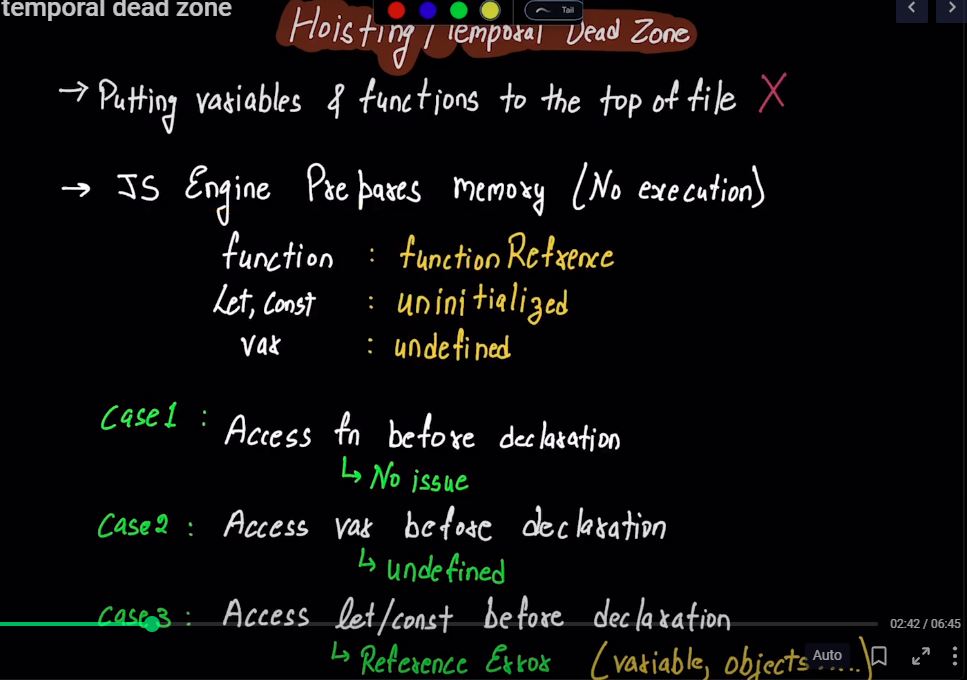 temporal dead zone
Tail
Hoisting / Temporal Dead Zone
→ Putting variables & functions to the top of file X
→ JS Engine Prepares memory (No execution)
function : function Refrence
Let, Const : uninitialized
var : undefined
Case1 : Access fn before declaration
↳ No issue
Case2 : Access var before declaration
↳ undefined
Case3 : Access let/const before declaration
02:42 / 06:45
↳ Reference Error (variable, objects .....)
Auto